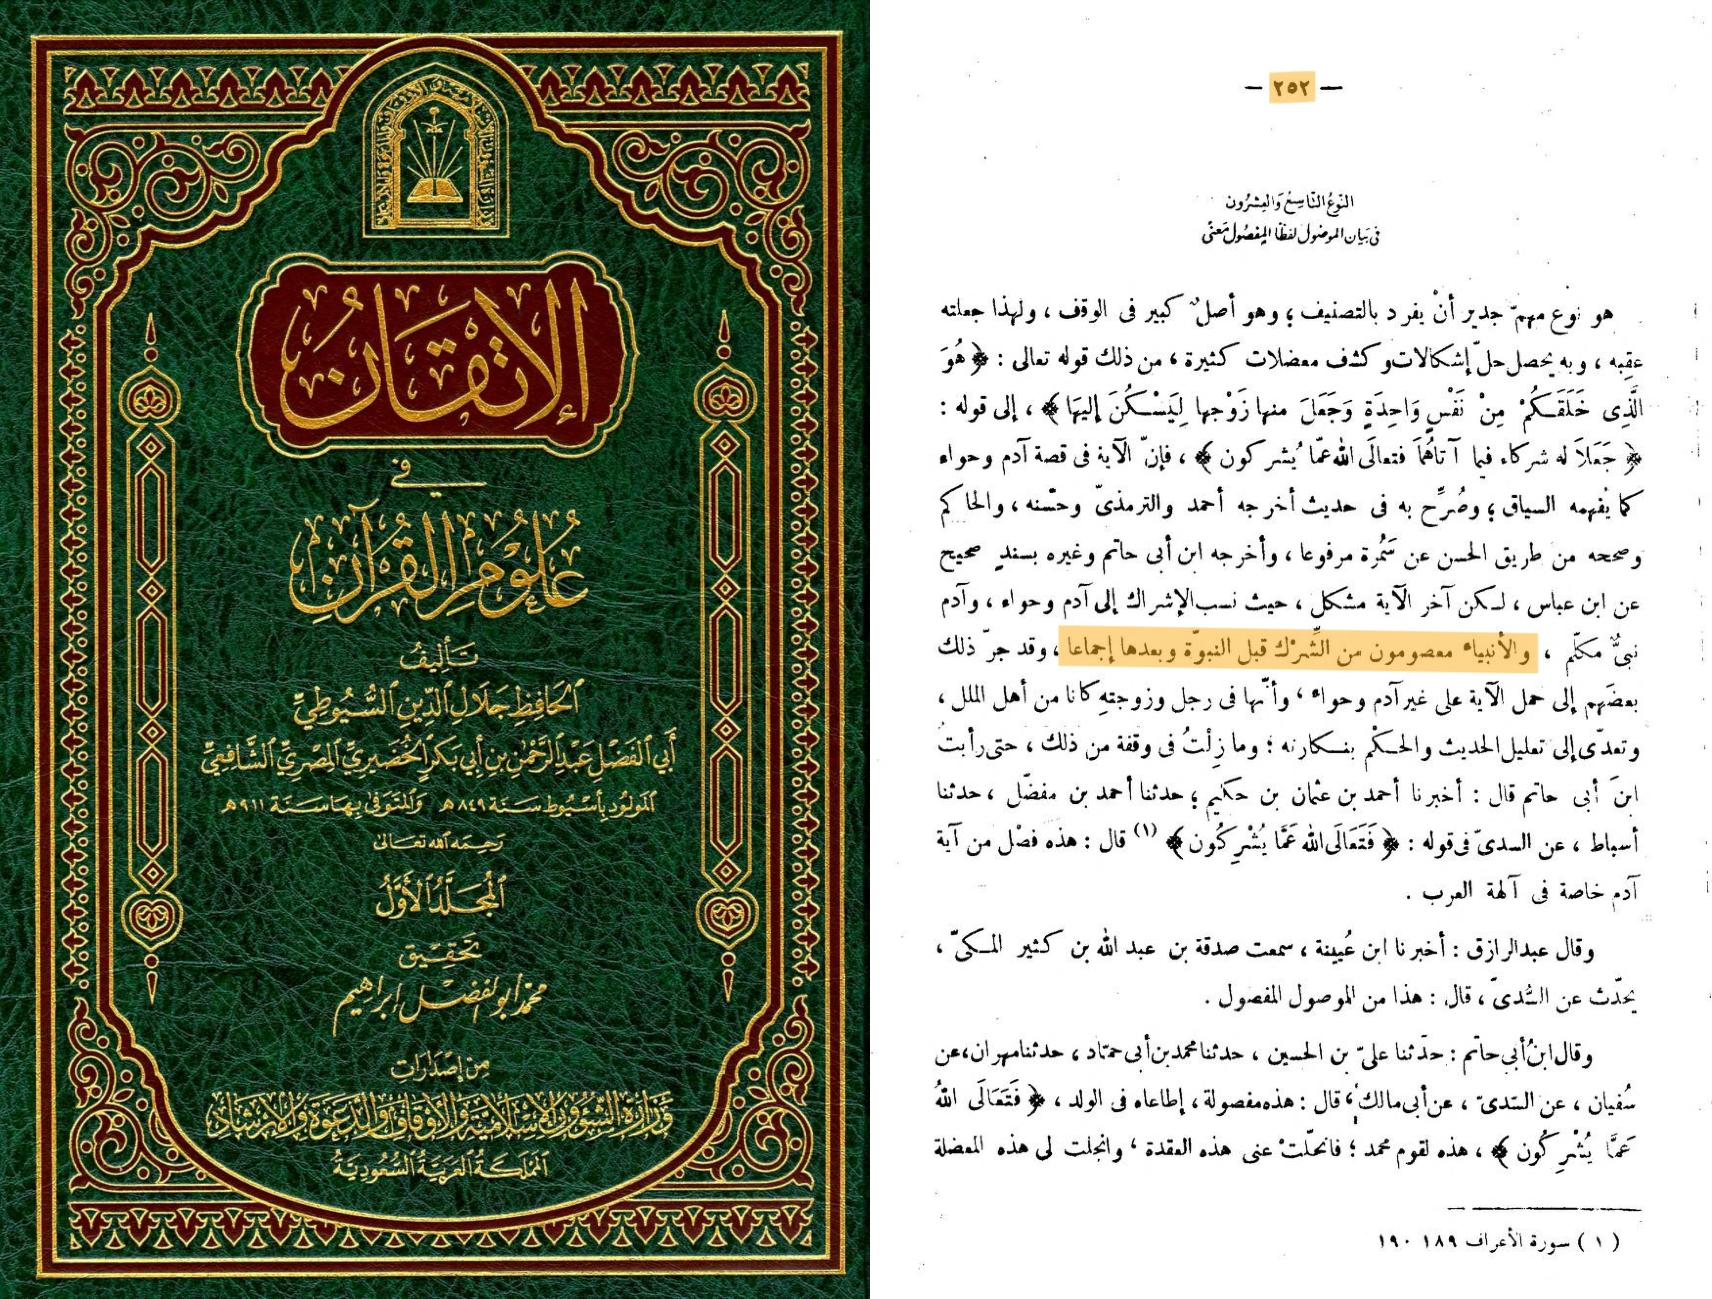 الإتقان
في
علوم القرآن
تأليف
الحافظ جلال الدين السيوطي
أبي الفضل عبد الرحمن بن أبي بكر الخضيري المصري الشافعي
المولود بأسيوط سنة ٨٤٩ه والمتوفى بها سنة ٩١١ه
رحمه الله تعالى
المجلد الأول
تحقيق
محمد أبو الفضل إبراهيم
من إصدارات
وزارة الشؤون الإسلامية والأوقاف والدعوة والإرشاد
المملكة العربية السعودية
— ٢٥٢ —
النوع التاسع والعشرون
فى بيان الموصول لفظا المفصول معنى
هو نوع مهمّ جدير أنْ يفرد بالتصنيف ؛ وهو أصلٌ كبير فى الوقف ، ولهذا جعلته
عقبه ، وبه يحصل حلّ إشكالات وكشف معضلات كثيرة ، من ذلك قوله تعالى : ﴿ هُوَ
الَّذِى خَلَقَكُمْ مِنْ نَفْسٍ وَاحِدَةٍ وَجَعَلَ منها زَوْجها لِيَسْكُنَ إليهَا ﴾ ، إلى قوله :
﴿ جَعَلاَ له شركاء فيما آتاهُمَا فتعالَى الله عمّا يُشركون ﴾ ، فإنّ الآية فى قصة آدم وحواء
كما يُفهمه السياق ؛ وصُرِّح به فى حديث أخرجه أحمد والترمذىّ وحسّنه ، والحاكم
وصححه من طريق الحسن عن سَمُرة مرفوعا ، وأخرجه ابن أبى حاتم وغيره بسندٍ صحيح
عن ابن عباس ، لـكن آخر الآية مشكل ، حيث نسب الإشراك إلى آدم وحواء ، وآدم
نبىٌّ مكلّم ، والأنبياء معصومون من الشِّرْك قبل النبوّة وبعدها إجماعا ، وقد جرّ ذلك
بعضَهم إلى حمل الآية على غير آدم وحواء ، وأنّها فى رجل وزوجتهِ كانا من أهل الملل ،
وتعدّى إلى تعليل الحديث والحـكْم بنـكارته ؛ وما زِلْتُ فى وقفة من ذلك ، حتى رأيتُ
ابنَ أبى حاتم قال : أخبرنا أحمد بن عثمان بن حَكيم ؛ حدثنا أحمد بن مفضّل ، حدثنا
أسباط ، عن السدىّ فى قوله : ﴿ فَتَعَالَى الله عَمَّا يُشْرِكُون ﴾ (١) قال : هذه فصْل من آية
آدم خاصة فى آلهة العرب .
وقال عبد الرازق : أخبرنا ابن عُيينة ، سمعت صدقة بن عبد الله بن كثير المـكىّ ،
يحدّث عن السُّدىّ ، قال : هذا من الموصول المفصول .
وقال ابنُ أبى حاتم : حدّثنا علىّ بن الحسين ، حدثنا محمد بن أبى حمّاد ، حدثنا مهران ، عن
سُفيان ، عن السّدىّ ، عن أبى مالك ؛ قال : هذه مفصولة ، إطاعاه فى الولد ، ﴿ فَتَعَالَى اللهُ
عَمَّا يُشْرِكُون ﴾ ، هذه لقوم محمد ؛ فانحلّتْ عنى هذه العقدة ، وانجلت لى هذه المعضلة
( ١ ) سورة الأعراف ١٨٩ ١٩٠